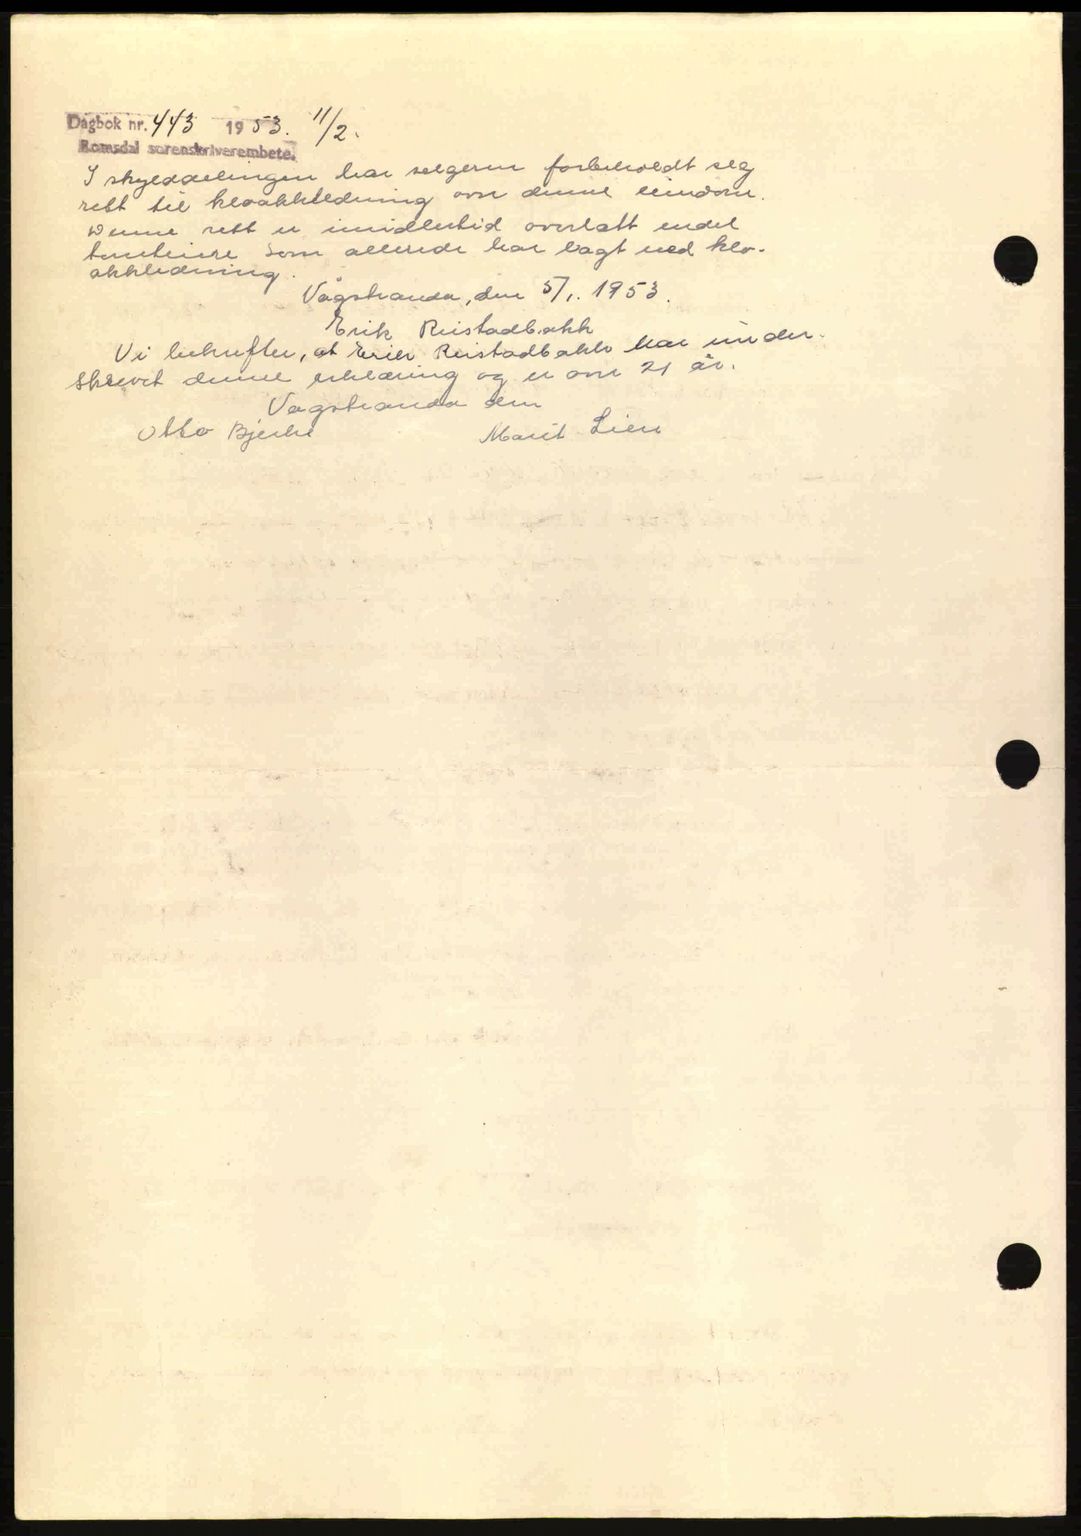 Dagbok nr. 443 1953. 11/2.
Romsdal sorenskriverembete.
I skylddelingen har selgeren forbeholdt seg
rett til kloakkledning over denne eiendom.
Denne rett er imidlertid overlatt endel
tomteiere som allerede har lagt ned klo-
akkledning.
Vågstranda, den 5/1. 1953.
Erik Reistadbakk
Vi bekrefter, at Erik Reistadbakk har under-
skrevet denne erklæring og er over 21 år.
Vågstranda den
Otto Bjerke Marit Lien